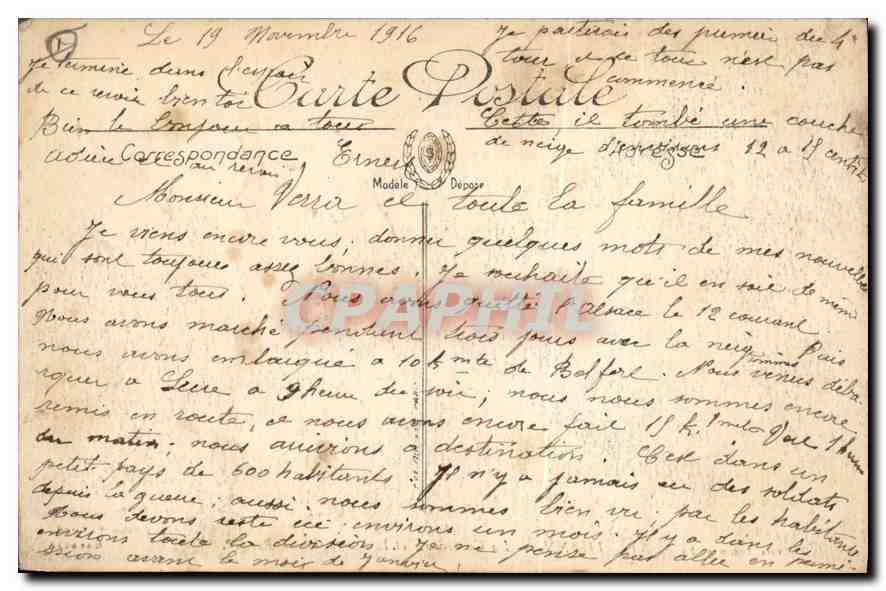 1
Le 19 Novembre 1916
Je partirais des premier du 4e
tour et ce tour n'est pas
commencé.
Cette il tombé une couche
de neige d'environs 12 a 15 centi
Je termine dans l'espoir
de ce revoir bientot
Bien le bonjour a tous
adieu et au revoir
Ernest
Carte Postale
Correspondance
Adresse
Modèle Déposé
Monsieur Verra et toute la famille
Je viens encore vous donner quelques mots de mes nouvelles
qui sont toujours assez bonnes. Je souhaite qu'il en soit de même
pour vous tous. Nous avons quitté l'Alsace le 12 courant.
Nous avons marché pendant trois jours avec la neige Puis
nous avons embarqué a 10 k mte de Belfort. Nous sommes venus déba-
rquer a Lure a 9 heure du soir; nous nous sommes encore
remis en route, et nous avons encore fait 15 k. mte Vers 1 heure
du matin; nous arrivions a destination. C'est dans un
petit pays de 600 habitants. Il n'y a jamais eu des soldats
depuis la guerre; aussi nous sommes bien vu par les habitants
Nous devons resté ici environs un mois. Il y a dans les
environs toute la division. Je ne pense pas allée en permi-
sion avant le mois de Janvier
CPAPHIL